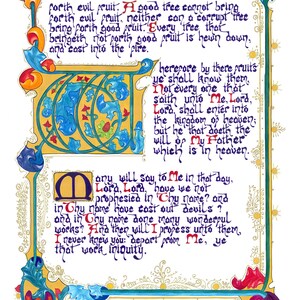 forth evil fruit. A good tree cannot bring
forth evil fruit, neither can a corrupt tree
bring forth good fruit. Every tree that
bringeth not forth good fruit is hewn down,
and cast into the fire.
Therefore by their fruits
ye shall know them.
Not every one that
saith unto Me, Lord,
Lord, shall enter into
the kingdom of heaven;
but he that doeth the
will of My Father
which is in heaven.
Many will say to Me in that day,
Lord, Lord, have we not
prophesied in Thy name? and
in Thy name have cast out devils?
and in Thy name done many wonderful
works? And then will I profess unto them,
I never knew you: depart from Me, ye
that work iniquity.